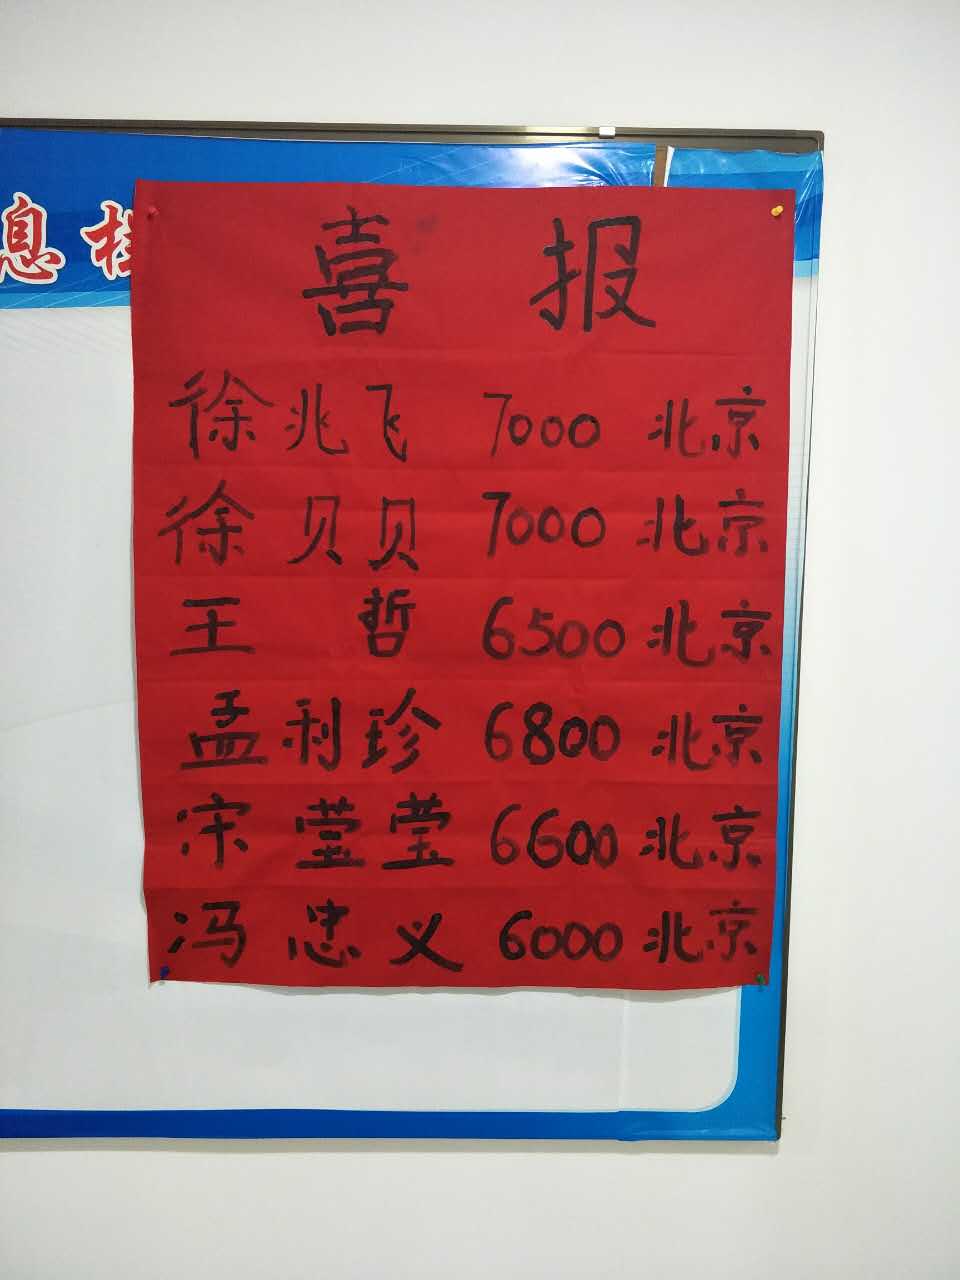 息栏
喜报
徐兆飞 7000 北京
徐贝贝 7000 北京
王哲 6500 北京
孟利珍 6800 北京
宋莹莹 6600 北京
冯忠义 6000 北京